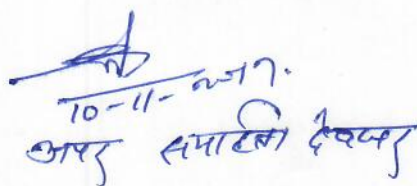 10-11-२०१७.
अपर समाहर्ता देवघर